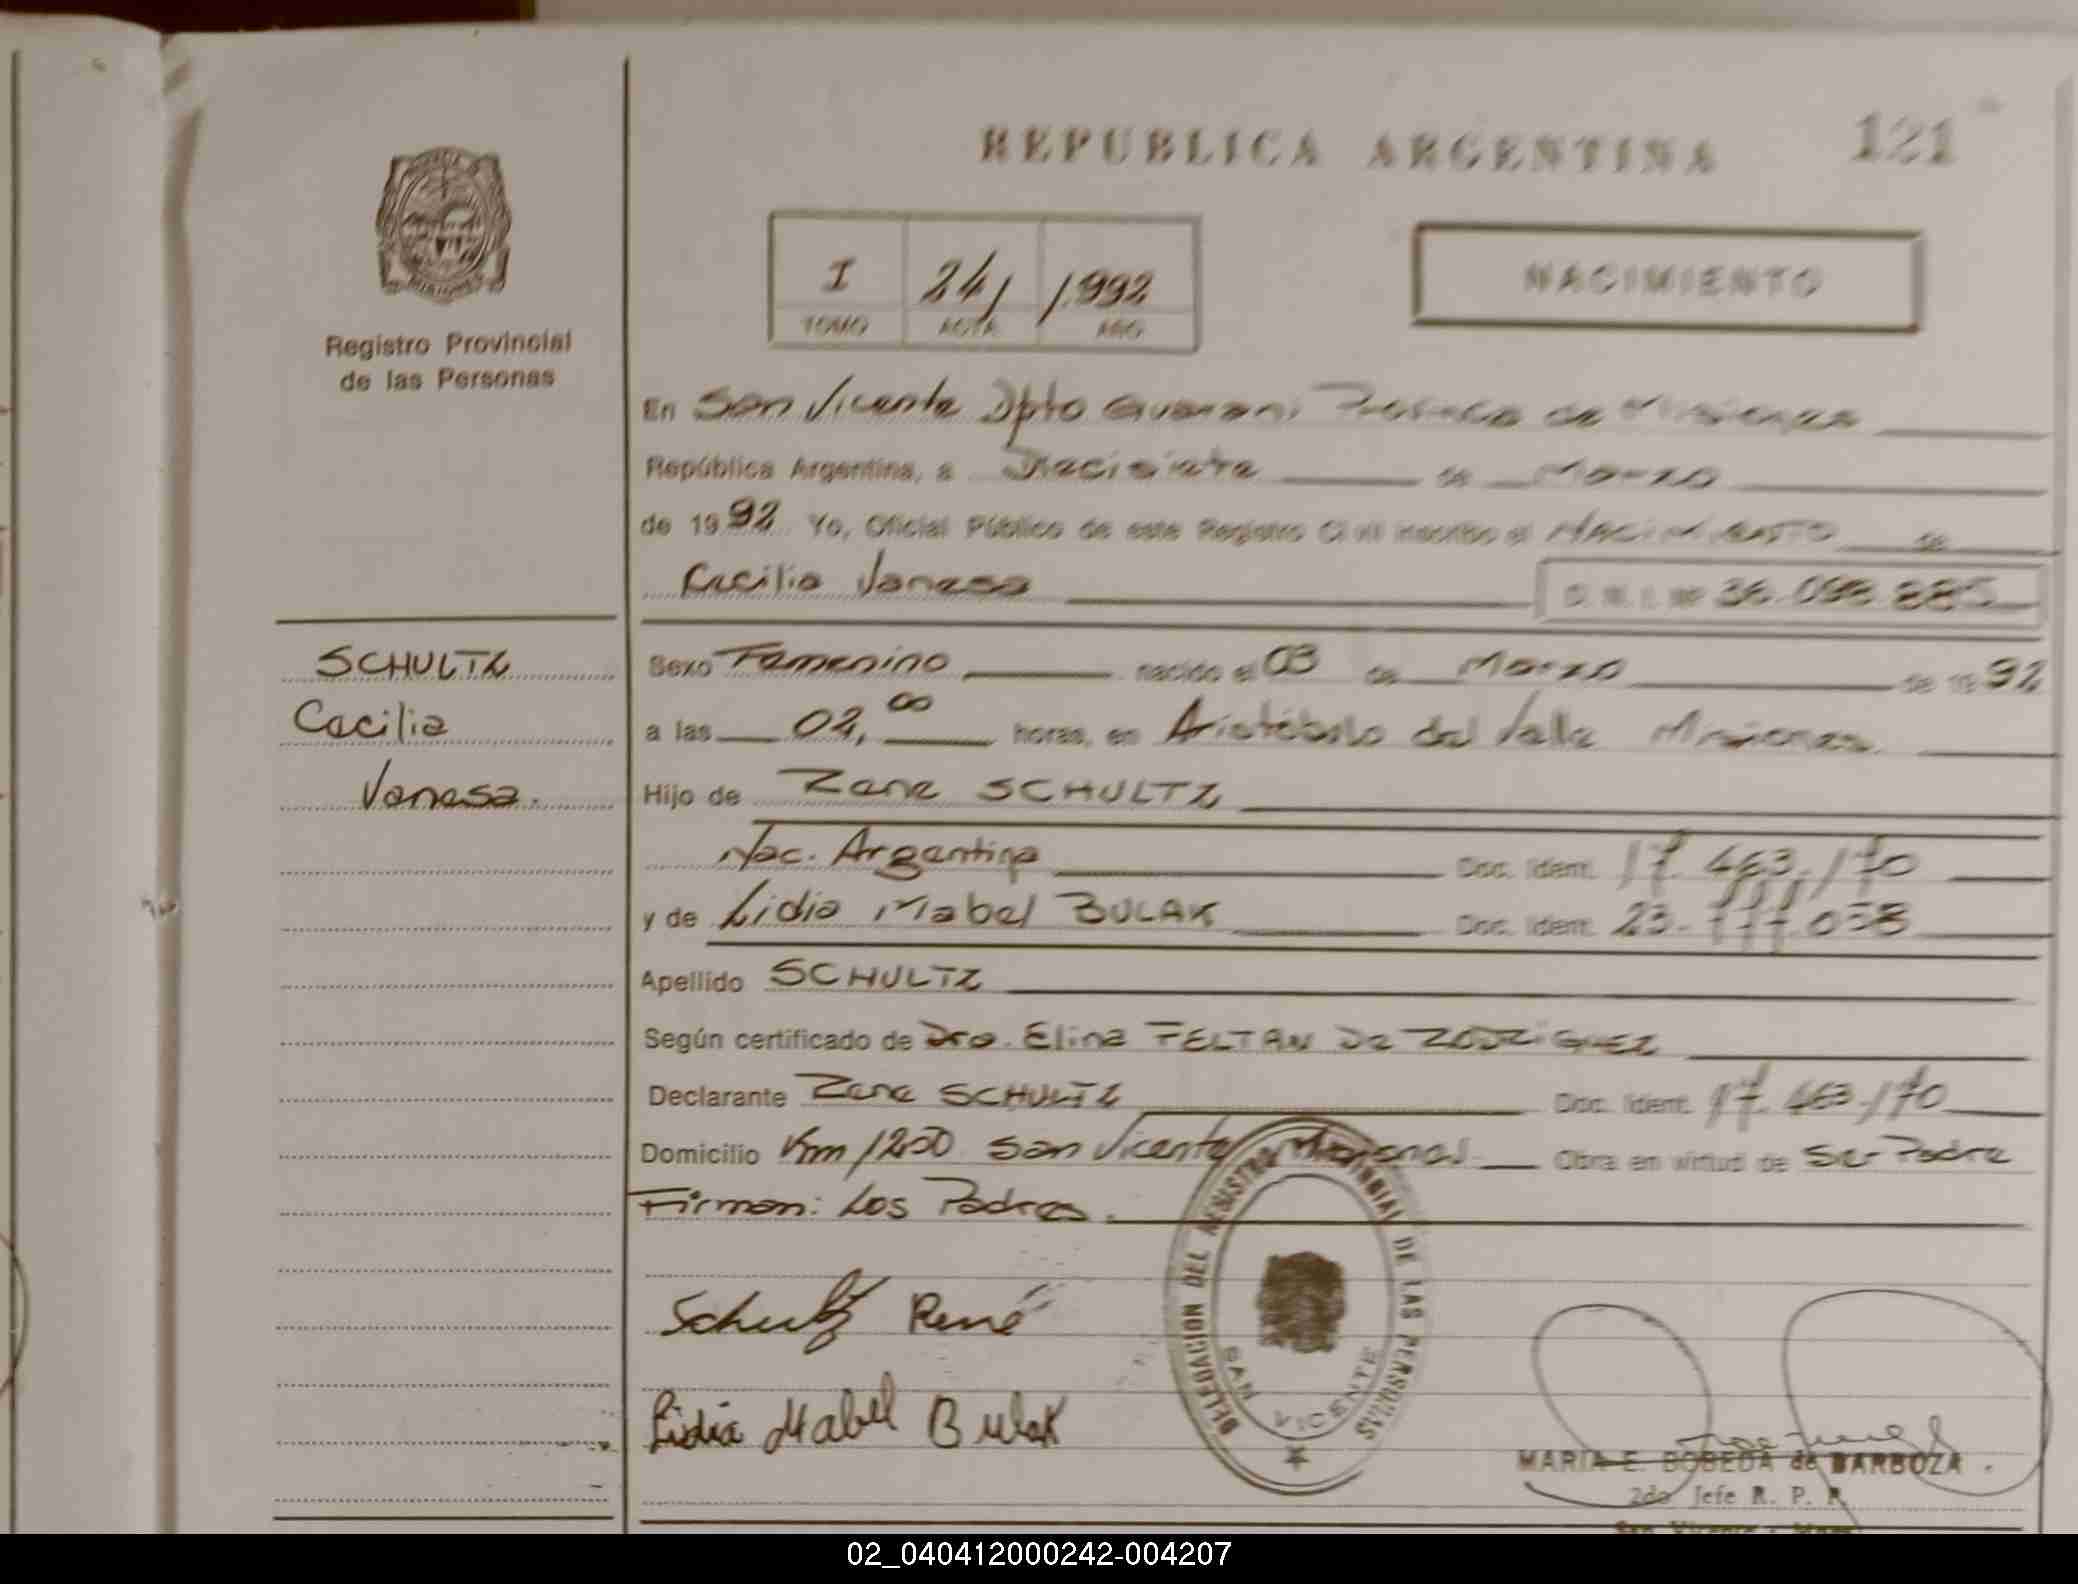 REPUBLICA ARGENTINA 121
I 24 1992
TOMO ACTA AÑO
NACIMIENTO
Registro Provincial
de las Personas
En San Vicente Dpto Guarani Provincia de Misiones
República Argentina, a Diecisiete de Marzo
de 1992 Yo, Oficial Público de este Registro Civil inscribo el NACIMIENTO de
Cecilia Vanesa D. N. I. Nº 36.098.885
SCHULTZ
Cecilia
Vanesa.
Sexo Femenino nacido el 03 de Marzo de 1992
a las 02,00 horas, en Aristóbulo del Valle Misiones.
Hijo de Rene SCHULTZ
Nac. Argentina Doc. Ident. 17.463.170
y de Lidia Mabel BULAK Doc. Ident. 23.777.038
Apellido SCHULTZ
Según certificado de Dra. Elina FELTAN De RODRIGUEZ
Declarante Rene SCHULTZ Doc. Ident. 17.463.170
Domicilio Km 1200 San Vicente Misiones. Obra en virtud de Ser Padre
Firman: Los Padres.
Schultz René
Lidia Mabel Bulak
DELEGACION DEL REGISTRO PROVINCIAL DE LAS PERSONAS
SAN VICENTE
MARIA E. BOBEDA de BARBOZA
2do Jefe R. P. P.
San Vicente - Mnes.
02_040412000242-004207